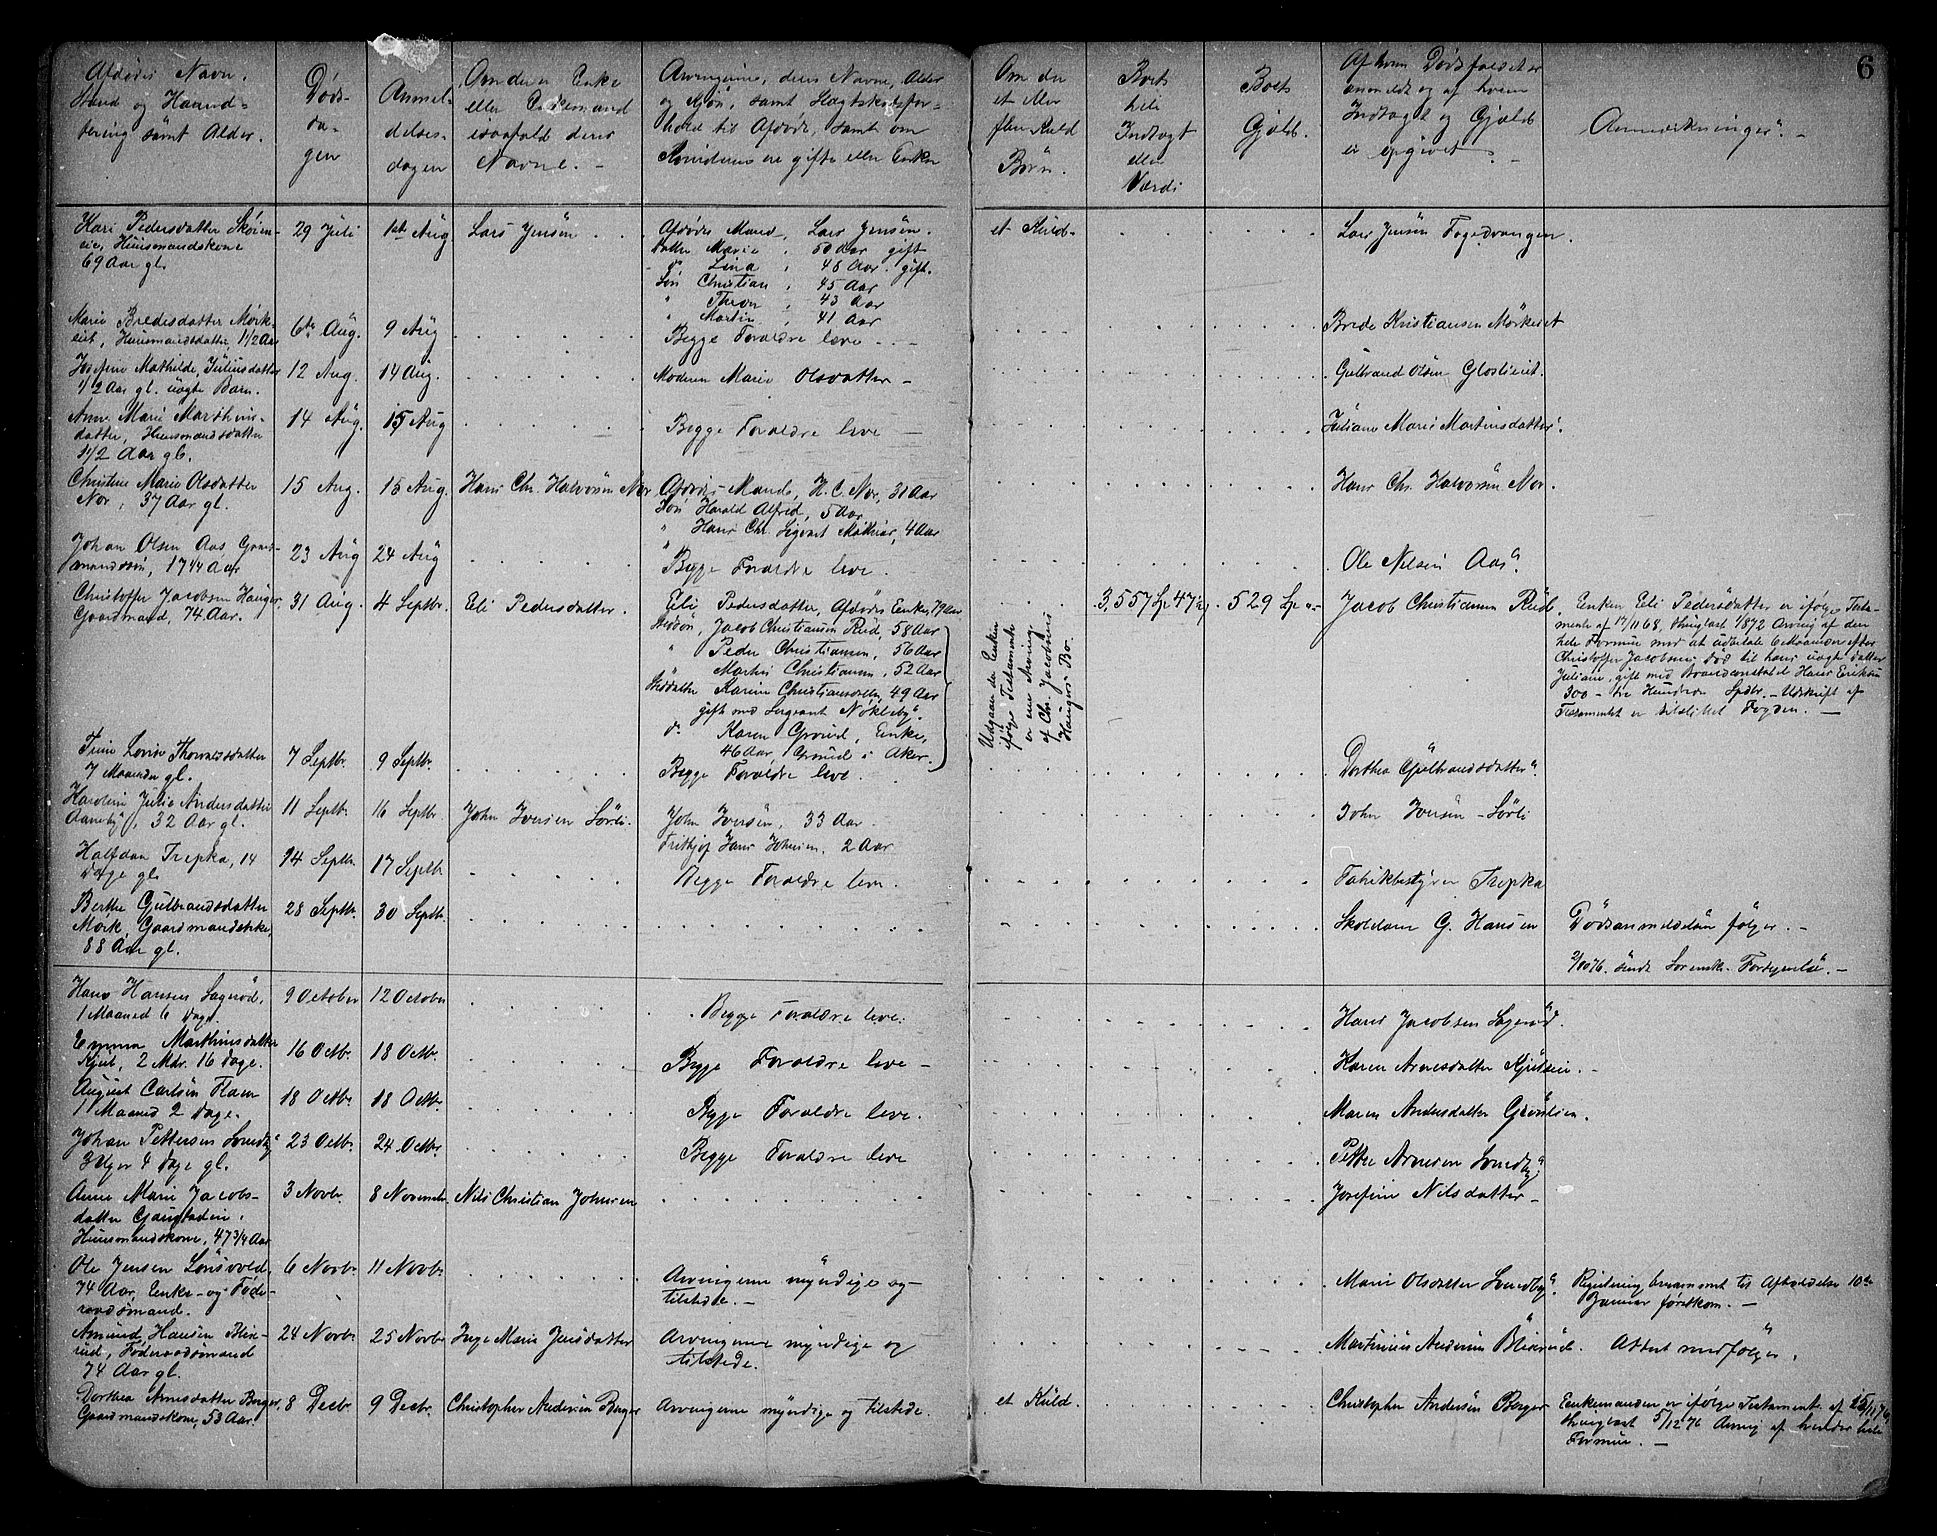 6
Afdødes Navn,
Stand og Haand-
tering samt Alder.
Døds-
da-
gen
Anmel-
delses-
dagen
Om der er Enke
eller Enkemand
isaafald deres
Navne. -
Arvingerne, deres Navne, Alder
og Kjøn, samt Slægtskabsfor-
hold til Afdøde, samt om
Kvinderne ere gifte eller Enker
Om der
et eller
flere Kuld
Børn.
Boets
hele
Indtægt
eller
Værdi
Boets
Gjæld.
Af hvem Dødsfaldet er
anmeldt og af hvem
Indtægt og Gjæld
er opgivet. -
Anmerkninger. -
Kari Pedersdatter Skøien-
eie, Huusmandskone
69 Aar gl.
29 Juli
1ste Aug
Lars Jensen
Afdødes Mand, Lars Jensen.
Datter Marie, 50 Aar gift
" d° Lina, 48 Aar. gift.
Søn Christian, 45 Aar
" Thron, 43 Aar
" Martin, 41 Aar
et Kuld.
Lars Jensen Fogedvangen.
Marie Bredesdatter Mørk-
eiet, Huusmandsdatter, 1 1/2 Aar
6te Aug.
9 Aug
Begge Forældre leve
Brede Kristiansen Mørkeiet
Josefine Mathilde, Juliusdatter
1/2 Aar gl. uægte Barn.
12 Aug.
14 Aug.
Moderen Marie Olsdatter -
Gulbrand Olsen
Anne Marie Marthins-
datter, Huusmandsdatter
1 1/2 Aar gl.
14 Aug.
15 Aug
Begge Forældre leve -
Juliane Marie Martinsdatter.
Christine Marie Olsdatter
Nor, 37 Aar gl.
15 Aug.
15 Aug.
Hans Chr. Halvorsen Nor.
Afdødes Mands, H. C. Nor, 31 Aar
Søn Harald Alfred, 5 Aar
" Hans Chr. Sigvart 4 Aar
Hans Chr. Halvorsen Nor.
Johan Olsen Aas, Gaard-
mandssøn, 17 1/4 Aar
23 Aug
24 Aug
Begge Forældre leve.
Ole Nilsen Aas.
Christoffer Jacobsen Hauger
Gaardmand, 74 Aar.
31 Aug.
4 Septbr.
Eli Pedersdatter.
Eli Pedersdatter, Afdødes Enke, 79 Aar
Stedsøn, Jacob Christiansen Rud, 58 Aar
" Peder Christiansen, 56 Aar
Martin Christiansen, 52 Aar
Steddatter Karine Christiansdtr, 49 Aar
gift med Sergeant Nøkleby.
d° Karen Grønd, Enke,
46 Aar, i Aker.
Udgaar da Enken
ifølge Testamente
er ene Arving
af Chr. Jacobsens
Haugers Bo.
3,557 47
529
Jacob Christiansen Rud.
Enken Eli Pedersdatter er ifølge Testa-
mente af 17/11 68, thinglæst 1/1872 Arving af den
hele Formue mod at udbetale 6 Maaneder efter
Christoffer Jacobsens død til hans uægte datter
Juliane, gift med Hans Eriksen
300 - tre Hundrede Spdlr. - Udskrift af
Testamentet er tilstillet Fogden. -
Trine Lovise Thomasdatter
7 Maaneder gl.
7 Septbr.
9 Septbr.
Begge Forældre leve.
Dorthea Gulbrandsdatter.
Karoline Julie Andersdatter
32 Aar gl.
11 Septbr.
16 Septbr.
John Iversen Sørli.
John Iversen, 33 Aar
Fritjof Hans Johnsen, 2 Aar
John Iversen Sørli
Halfdan Trepka, 14
Dage gl.
14 Septbr.
17 Septbr
Begge Forældre leve.
Fabrikbestyrer Trepka
Berthe Gulbrandsdatter
Mørk, Gaardmandsenke,
88 Aar gl.
28 Septbr.
30 Septbr.
Skolelærer G. Hansen
Dødsanmeldelsen følger. -
2/10 76. sendt Sorenskr. Fortegnelse. -
Hans Hansen Sagerød,
1 Maaned 6 Dage.
9 October
12 October
Begge Forældre leve.
Hans Jacobsen Sagerød.
Emma Marthinsdatter
2 Mdr. 16 Dage.
16 Octbr.
18 Octbr.
Begge Forældre leve -
Karen Arnesdatter
August Carlsen Ram
1 Maaned 2 Dage.
18 Octbr.
18 Octbr.
Begge Forældre leve.
Maren Andersdatter Grønlien.
Johan Pettersen Lundby
3 Uger 4 Dage gl.
23 Octbr.
24 Octbr.
Begge Forældre leve
Petter Arnesen Lundby.
Anne Marie Jacobs-
datter Gaustadeie,
Huusmandskone, 47 3/4 Aar
3 Novbr.
8 November
Nils Christian Johnsen
Josefine Nilsdatter -
Ole Jensen Lønsved,
74 Aar, Enke- og Føde-
raadsmand.
6 Novbr.
11 Novbr.
Arvingerne myndige og
tilstede. -
Marie Olsdatter Lundby.
Registrering berammet til Afholdelse 10de
Januar førstkom. -
Amund Hansen Blix-
rud, Føderaadsmand
74 Aar gl.
24 Novbr
25 Novbr.
Inge Marie Jensdatter
Arvingerne myndige og
tilstede.
Martinius Andersen Blixrud.
Attest medfølger.
Dorthea Arnesdatter Berger,
Gaardmandskone, 53 Aar.
8 Decbr.
9 Decbr.
Christopher Andersen Berger
Arvingerne myndige og tilstede.
et Kuld.
Christopher Andersen Berger
Enkemanden er ifølge Testament af 25/11 76
thinglæst 5/12 76 Arving af hendes hele
Formue. -